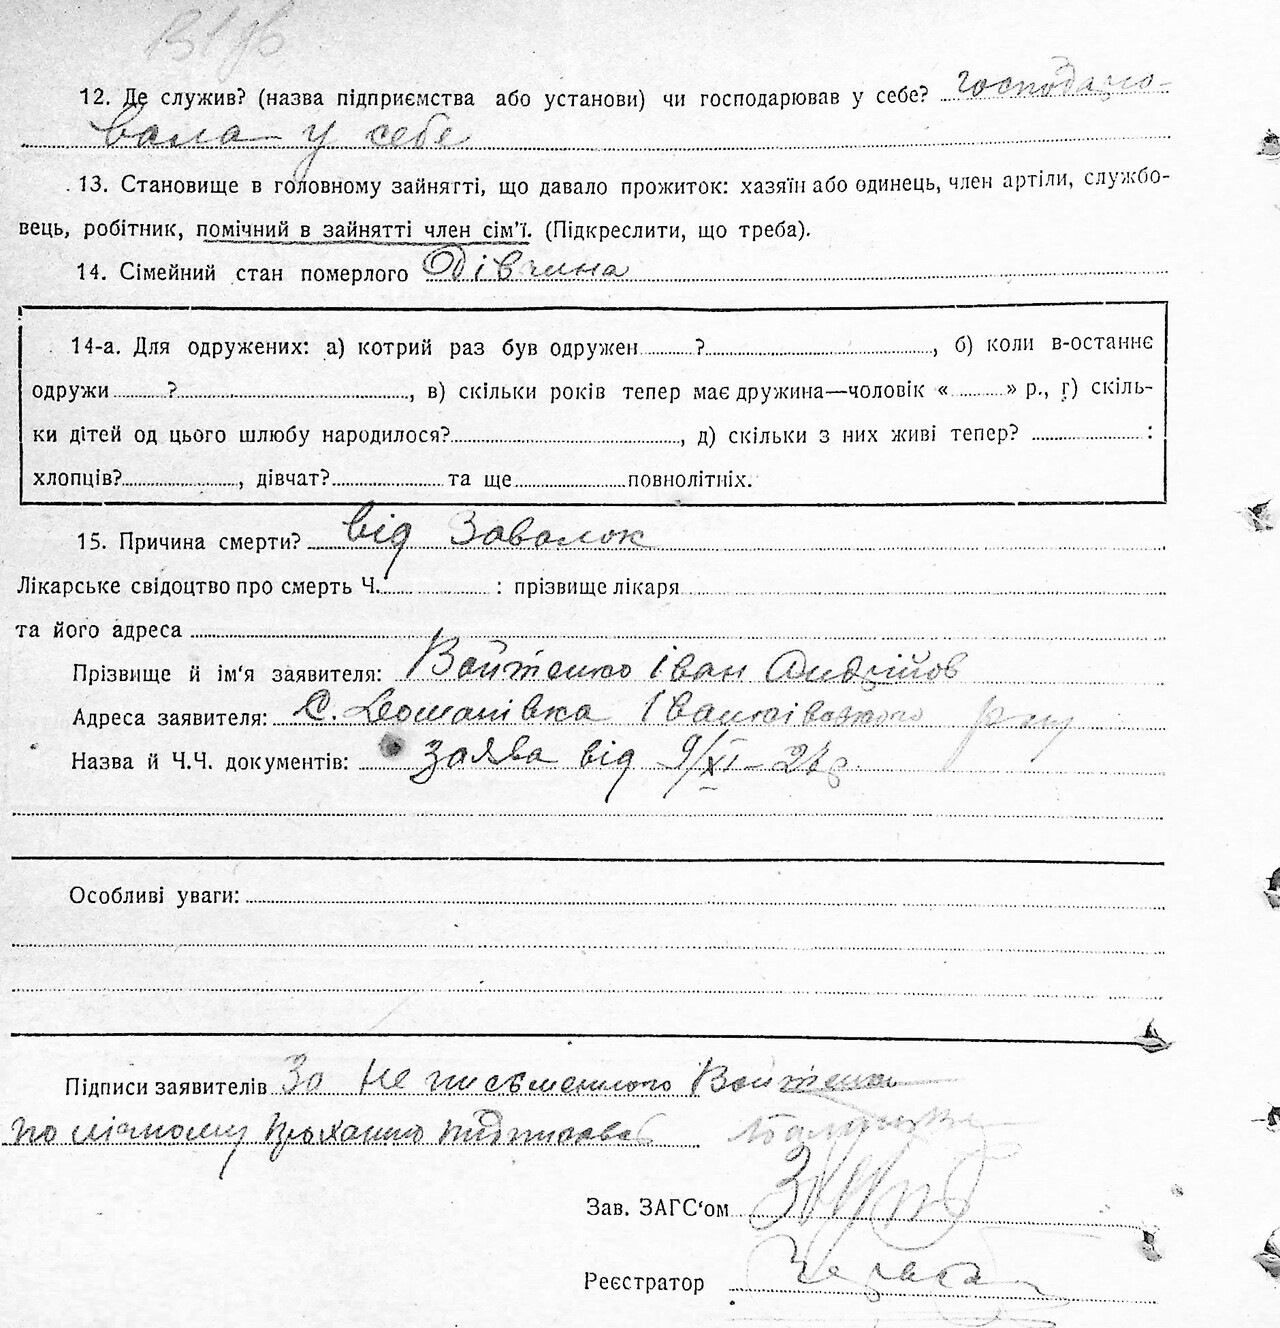 12. Де служив? (назва підприємства або установи) чи господарював у себе? господарю-
вала у себе
13. Становище в головному зайнятті, що давало прожиток: хазяїн або одинець, член артіли, службо-
вець, робітник, помічний в зайнятті член сім’ї. (Підкреслити, що треба).
14. Сімейний стан померлого Дівчина
14-а. Для одружених: а) котрий раз був одружен ? , б) коли в-останнє
одружи ? , в) скільки років тепер має дружина—чоловік « » р., г) скіль-
ки дітей од цього шлюбу народилося? , д) скільки з них живі тепер? :
хлопців? , дівчат? та ще повнолітніх.
15. Причина смерти? від Завалок
Лікарське свідоцтво про смерть Ч. : прізвище лікаря
та його адреса
Прізвище й ім‘я заявителя: Войтенко Іван Андрійов
Адреса заявителя: С. Леонівка Іванківського р-ну
Назва й Ч.Ч. документів: заява від 9/XI-
Особливі уваги:
Підписи заявителів За не письменного Войтенка
по його проханню підписав
Зав. ЗАГС‘ом
Реєстратор